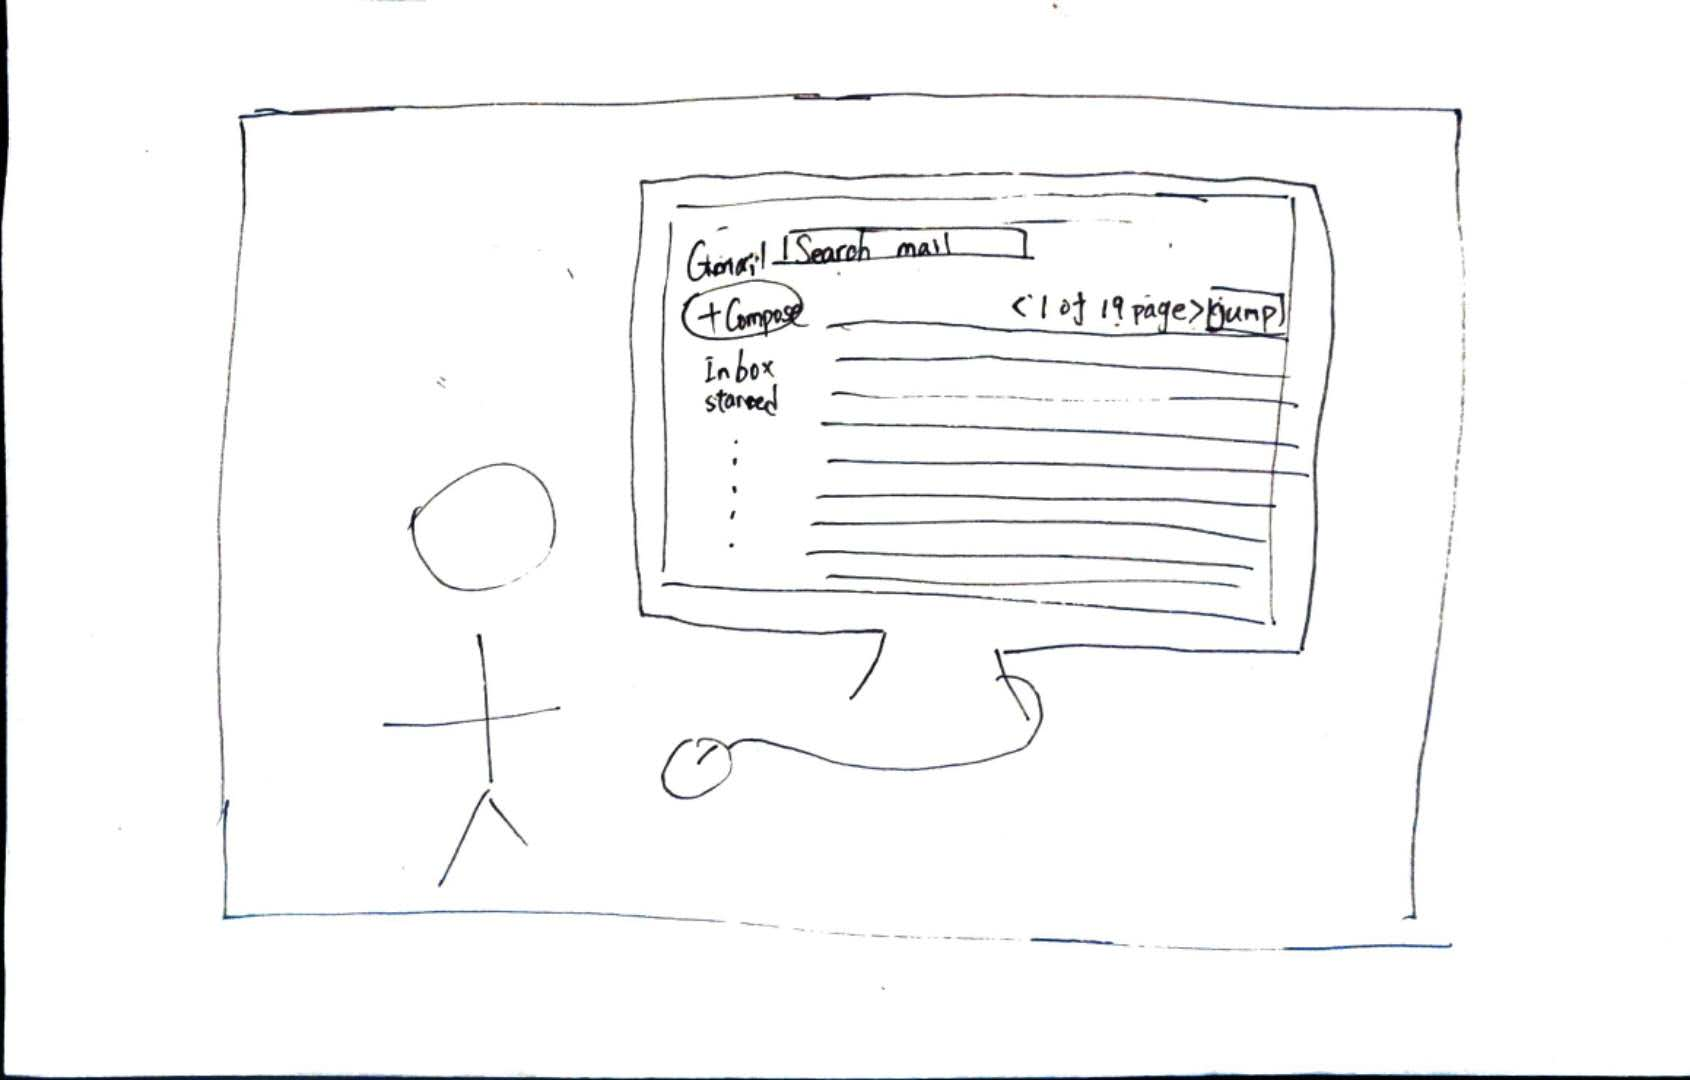 Gmail Search mail
+ Compose < 1 of 19 page > jump
Inbox
starred